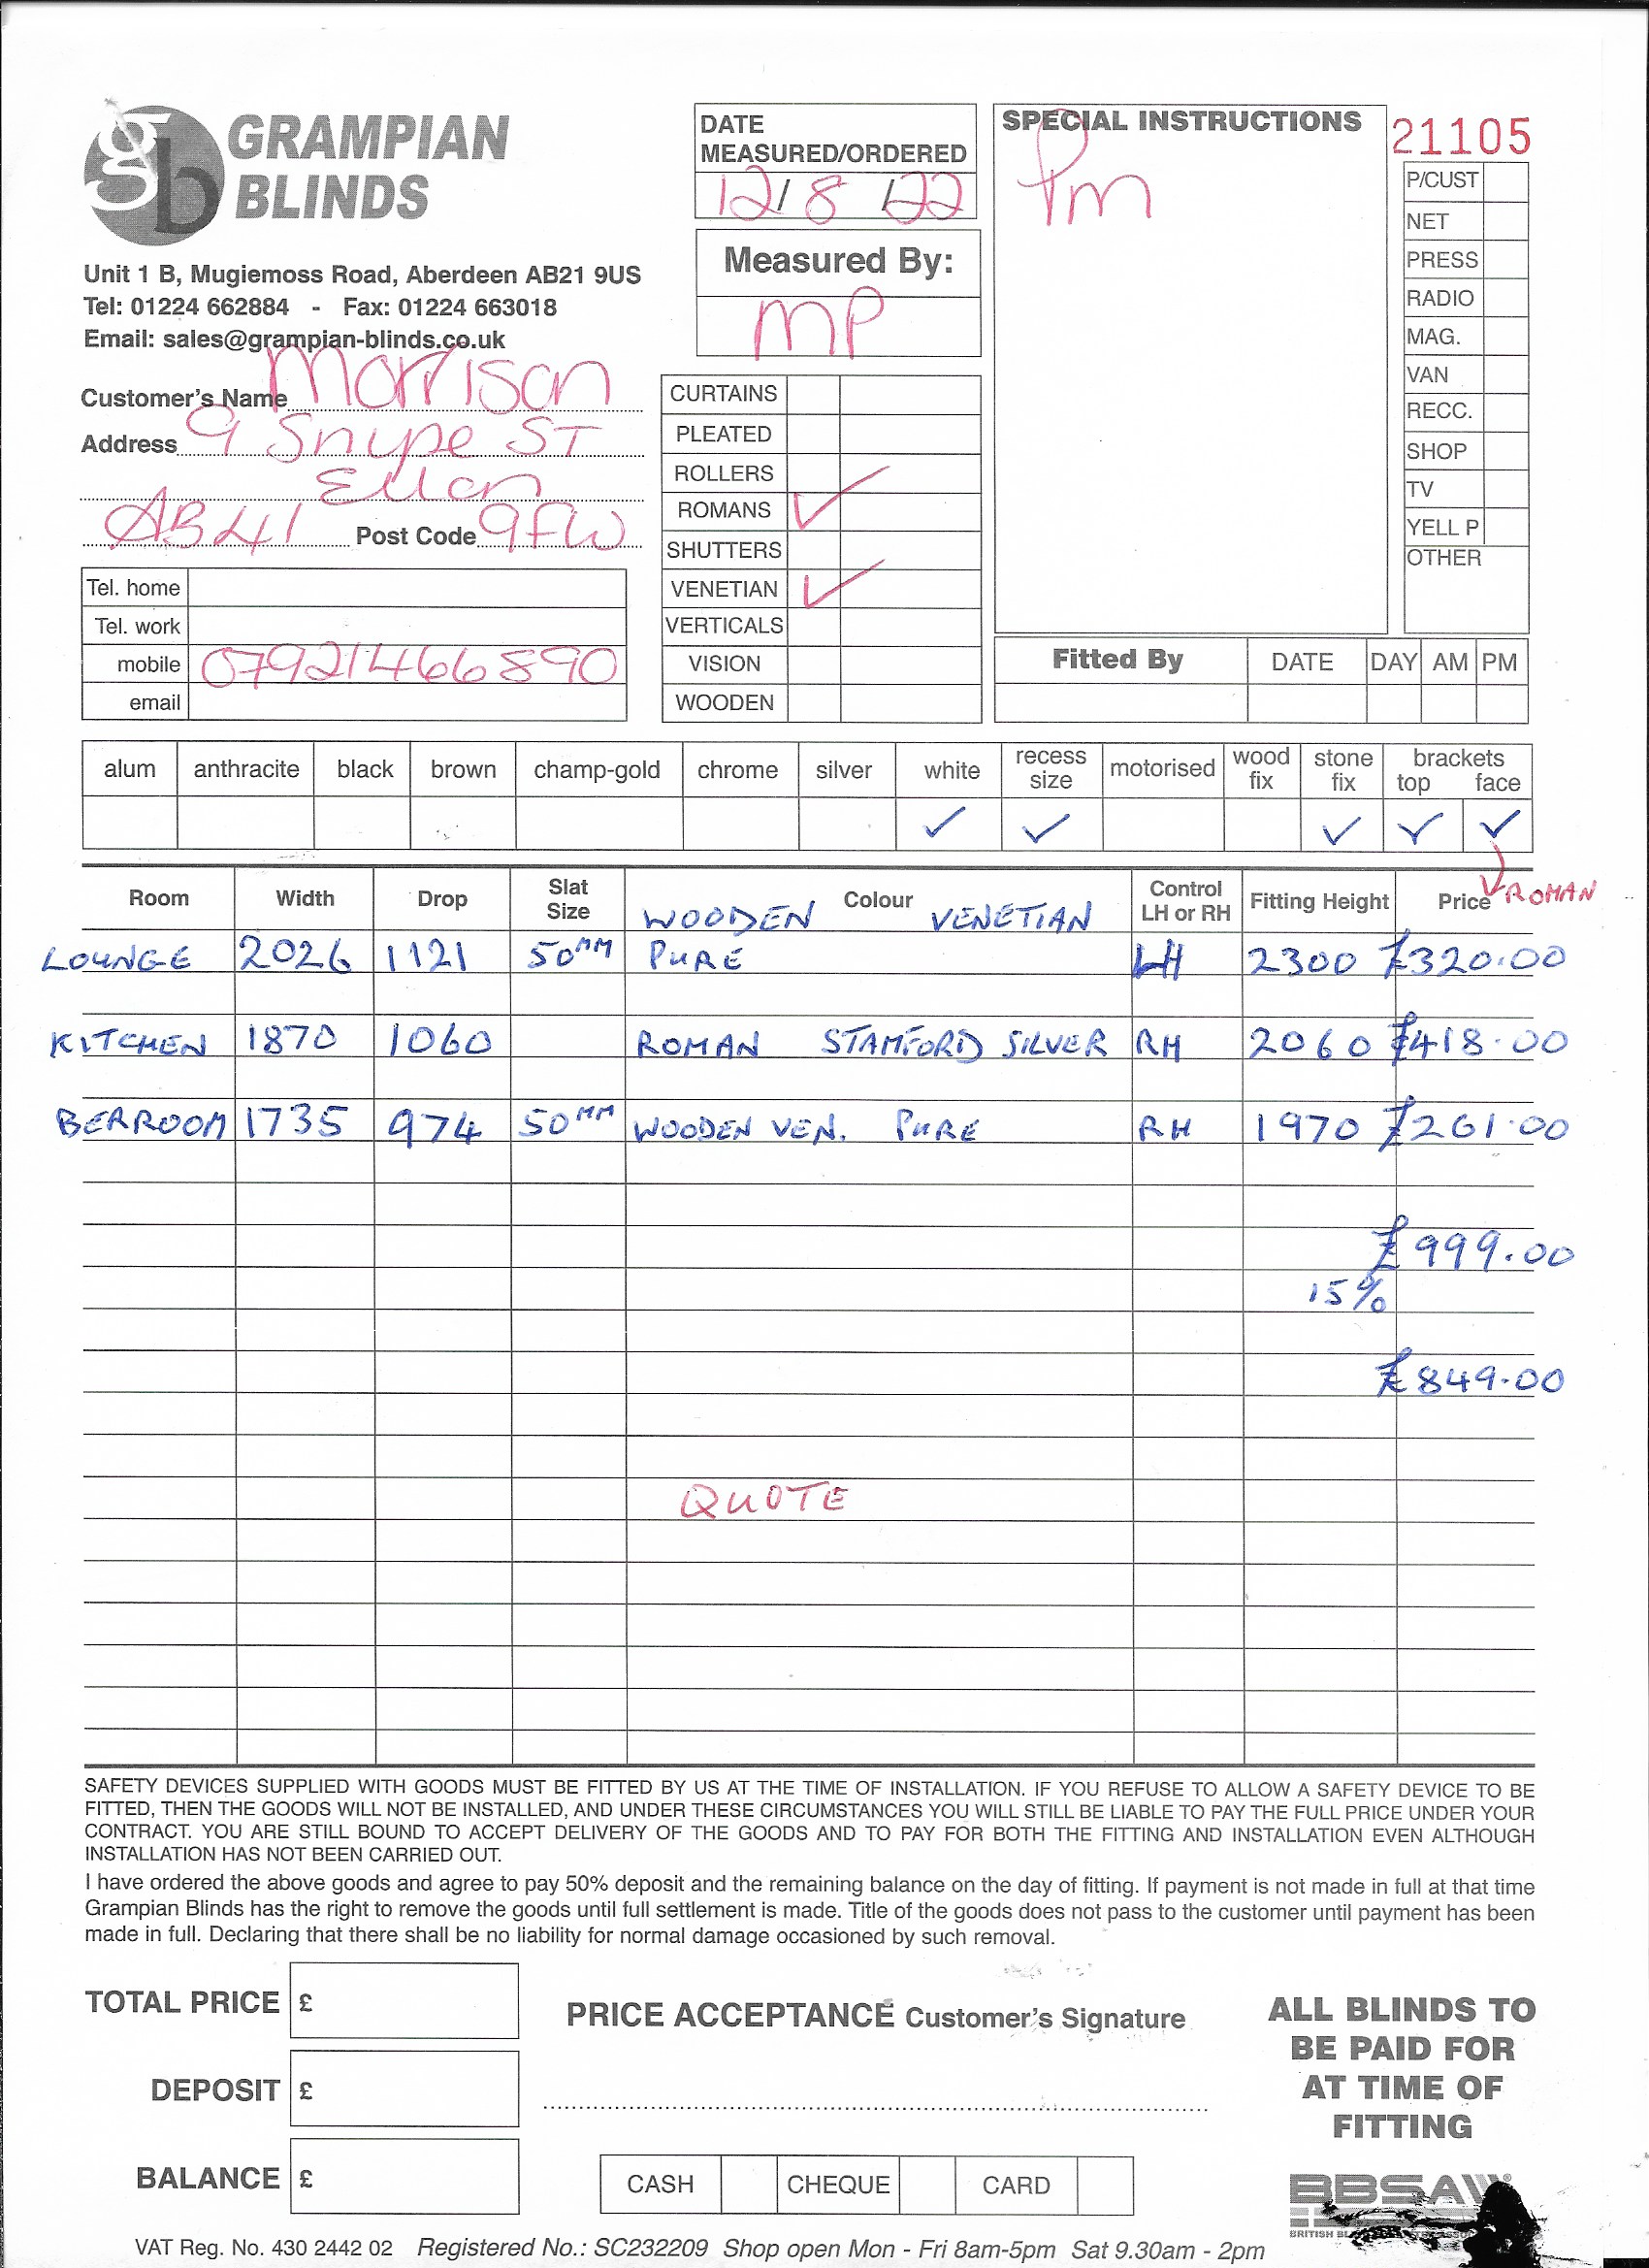 GRAMPIAN
BLINDS
Unit 1 B, Mugiemoss Road, Aberdeen AB21 9US
Tel: 01224 662884 - Fax: 01224 663018
Email: sales@grampian-blinds.co.uk
Customer's Name Morrison
Address 9 Snype ST
Ellon
AB41 Post Code 9FW
Tel. home
Tel. work
mobile 07921466890
email
DATE
MEASURED/ORDERED
12/8/22
Measured By:
MP
CURTAINS
PLEATED
ROLLERS
ROMANS ✓
SHUTTERS
VENETIAN ✓
VERTICALS
VISION
WOODEN
SPECIAL INSTRUCTIONS
Pm
21105
P/CUST
NET
PRESS
RADIO
MAG.
VAN
RECC.
SHOP
TV
YELL P
OTHER
Fitted By DATE DAY AM PM
alum anthracite black brown champ-gold chrome silver white recess size motorised wood fix stone fix brackets top face
✓ ✓ ✓ ✓ ✓
ROMAN
Room Width Drop Slat Size Colour Control LH or RH Fitting Height Price
WOODEN VENETIAN
LOUNGE 2026 1121 50MM PURE LH 2300 £320.00
KITCHEN 1870 1060 ROMAN STAMFORD SILVER RH 2060 £418.00
BERROOM 1735 974 50MM WOODEN VEN. PURE RH 1970 £261.00
£999.00
15%
£849.00
QUOTE
SAFETY DEVICES SUPPLIED WITH GOODS MUST BE FITTED BY US AT THE TIME OF INSTALLATION. IF YOU REFUSE TO ALLOW A SAFETY DEVICE TO BE
FITTED, THEN THE GOODS WILL NOT BE INSTALLED, AND UNDER THESE CIRCUMSTANCES YOU WILL STILL BE LIABLE TO PAY THE FULL PRICE UNDER YOUR
CONTRACT. YOU ARE STILL BOUND TO ACCEPT DELIVERY OF THE GOODS AND TO PAY FOR BOTH THE FITTING AND INSTALLATION EVEN ALTHOUGH
INSTALLATION HAS NOT BEEN CARRIED OUT.
I have ordered the above goods and agree to pay 50% deposit and the remaining balance on the day of fitting. If payment is not made in full at that time
Grampian Blinds has the right to remove the goods until full settlement is made. Title of the goods does not pass to the customer until payment has been
made in full. Declaring that there shall be no liability for normal damage occasioned by such removal.
TOTAL PRICE £
DEPOSIT £
BALANCE £
PRICE ACCEPTANCE Customer's Signature
CASH CHEQUE CARD
ALL BLINDS TO
BE PAID FOR
AT TIME OF
FITTING
BBSA
BRITISH
VAT Reg. No. 430 2442 02 Registered No.: SC232209 Shop open Mon - Fri 8am-5pm Sat 9.30am - 2pm